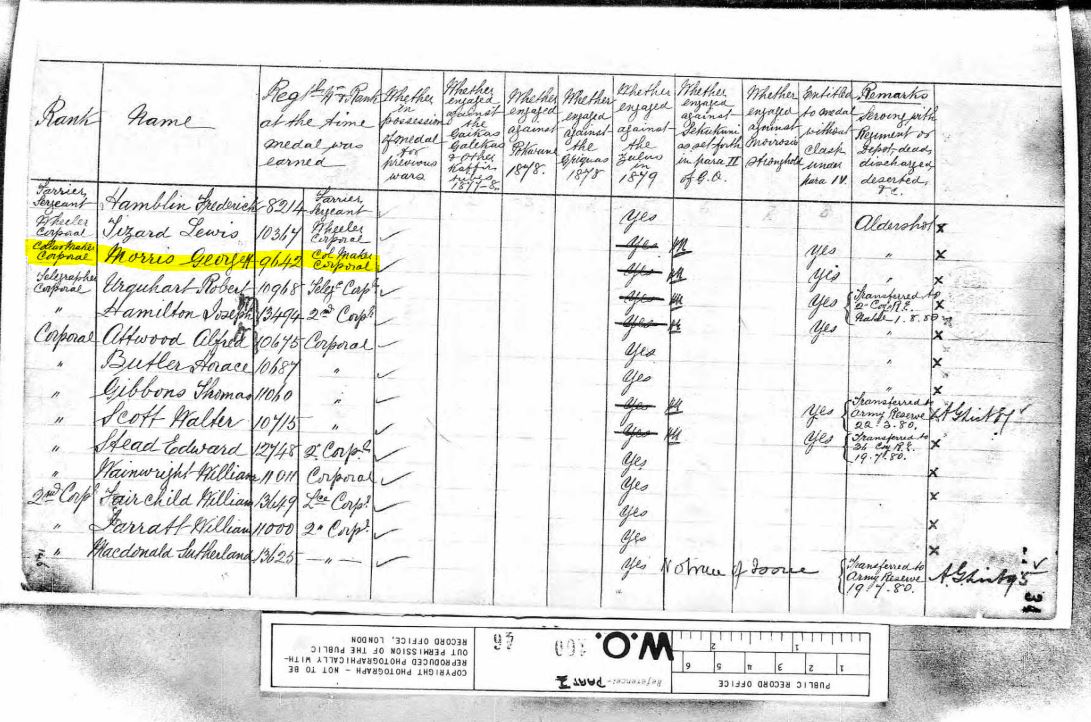 Rank
Name
Regtl No & Rank at the time medal was earned
Whether in possession of medal for previous wars
Whether engaged against the Gaikas Galekas & other Kaffir tribes 1877-8
Whether engaged against Pokwane 1878.
Whether engaged against the Griquas 1878
Whether engaged against the Zulus in 1879
Whether engaged against Sekukuni as set forth in para II of G.O.
Whether engaged against Moirosi's stronghold
Entitled to medal without clasp under para IV.
Remarks Serving with Regiment or Depot, dead, discharged, deserted, &c.
Farrier Sergeant Hamblin Frederick 8214 Farrier Sergeant ✓ Yes Aldershot x
Wheeler Corporal Tizard Lewis 10367 Wheeler Corporal ✓ Yes Yes " x
Collar Maker Corporal Morris George 9642 Col Maker Corporal ✓ Yes Yes " x
Telegraphist Corporal Urquhart Robert 10968 Telegh Corpl ✓ Yes Yes { Transferred to Coy R.E. 1.8.80 x
" Hamilton Joseph 13494 2nd Corpl ✓ Yes Yes x
Corporal Attwood Alfred 10675 Corporal ✓ Yes " x
" Butler Horace 10687 " ✓ Yes " x
" Gibbons Thomas 11060 " ✓ Yes Yes { Transferred to Army Reserve 22.3.80.
" Scott Walter 10715 " ✓ Yes Yes { Transferred to Coy R.E. 19.7.80. x
" Stead Edward 12748 2d Corpl ✓ Yes x
" Wainwright William 11011 Corporal ✓ Yes x
2nd Corpl Fairchild William 13649 Lce Corpl ✓ Yes
" Farratt William 11000 2nd Corpl ✓ Yes x
" Macdonald Sutherland 13625 — " — ✓ Yes No trace of Issue { Transferred to Army Reserve 19.7.80.
34
W.O. 100 46
Reference:- PART I
PUBLIC RECORD OFFICE
1 2 3 4 5 6
1 2
COPYRIGHT PHOTOGRAPH - NOT TO BE
REPRODUCED PHOTOGRAPHICALLY WITH-
OUT PERMISSION OF THE PUBLIC
RECORD OFFICE, LONDON